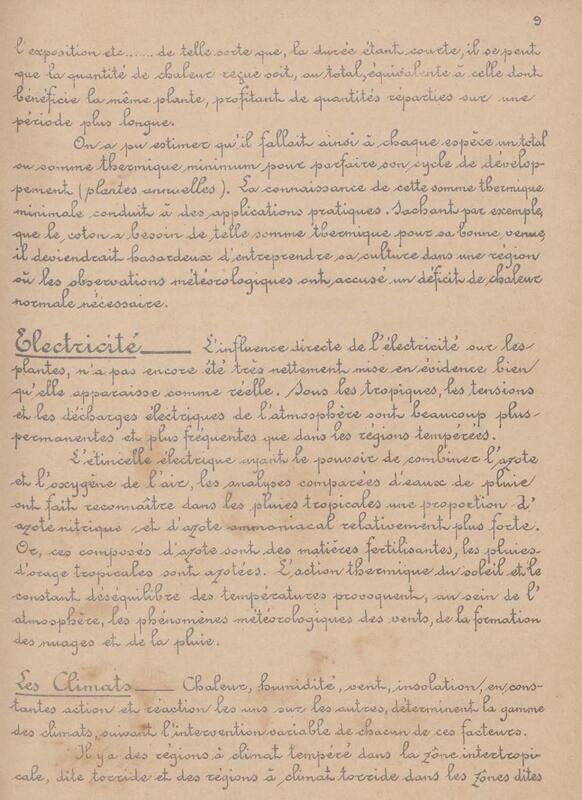 9
l'exposition etc...... de telle sorte que, la durée étant courte, il se peut
que la quantité de chaleur reçue soit, au total, équivalente à celle dont
bénéficie la même plante, profitant de quantités réparties sur une
période plus longue.
On a pu estimer qu'il fallait ainsi à chaque espèce un total
ou somme thermique minimum pour parfaire son cycle de dévelop-
pement (plantes annuelles). La connaissance de cette somme thermique
minimale conduit à des applications pratiques. Sachant par exemple,
que le coton a besoin de telle somme thermique pour sa bonne venue,
il deviendrait hasardeux d'entreprendre sa culture dans une région
où les observations météorologiques ont accusé un déficit de chaleur
normale nécessaire.
Electricité — L'influence directe de l'électricité sur les
plantes, n'a pas encore été très nettement mise en évidence bien
qu'elle apparaisse comme réelle. Sous les tropiques, les tensions
et les décharges électriques de l'atmosphère sont beaucoup plus-
permanentes et plus fréquentes que dans les régions tempérées.
L'étincelle électrique ayant le pouvoir de combiner l'azote
et l'oxygène de l'air, les analyses comparées d'eaux de pluie
ont fait reconnaître dans les pluies tropicales une proportion d'
azote nitrique et d'azote ammoniacal relativement plus forte.
Or, ces composés d'azote sont des matières fertilisantes, les pluies-
d'orage tropicales sont azotées. L'action thermique du soleil et le
constant déséquilibre des températures provoquent, au sein de l'
atmosphère, les phénomènes météorologiques des vents, de la formation
des nuages et de la pluie.
Les Climats — Chaleur, humidité, vent, insolation, en cons-
tantes action et réaction les uns sur les autres, déterminent la gamme
des climats, suivant l'intervention variable de chacun de ces facteurs.
Il y a des régions à climat tempéré dans la zône intertropi-
cale, dite torride et des régions à climat torride dans les zônes dites